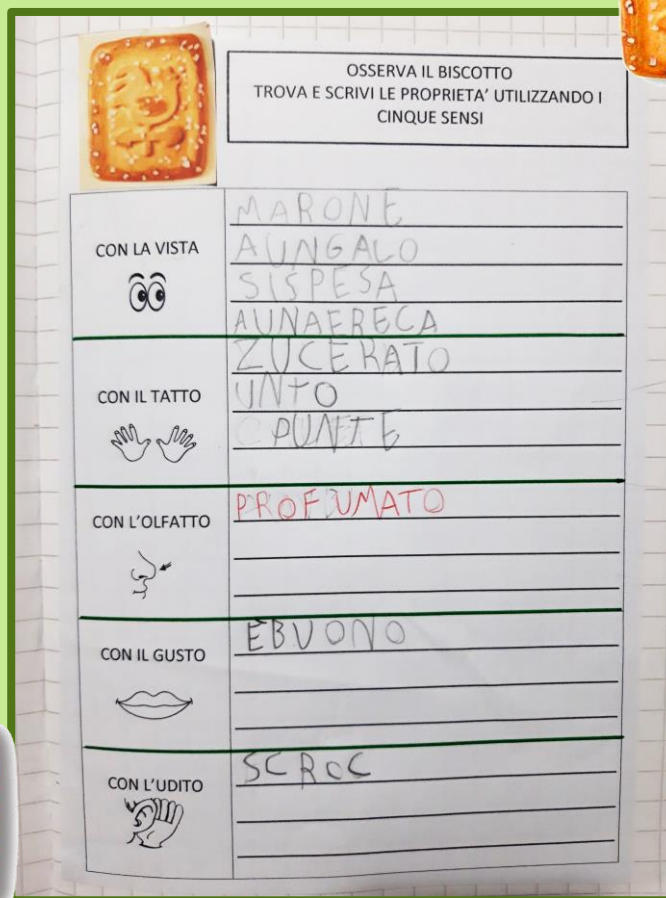 OSSERVA IL BISCOTTO
TROVA E SCRIVI LE PROPRIETA' UTILIZZANDO I
CINQUE SENSI
CON LA VISTA
MARONE
AUNGALO
SISPESA
AUNAERECA
CON IL TATTO
ZUCERATO
UNTO
PUNTE
CON L'OLFATTO
PROFUMATO
CON IL GUSTO
ÈBUONO
CON L'UDITO
SCROC